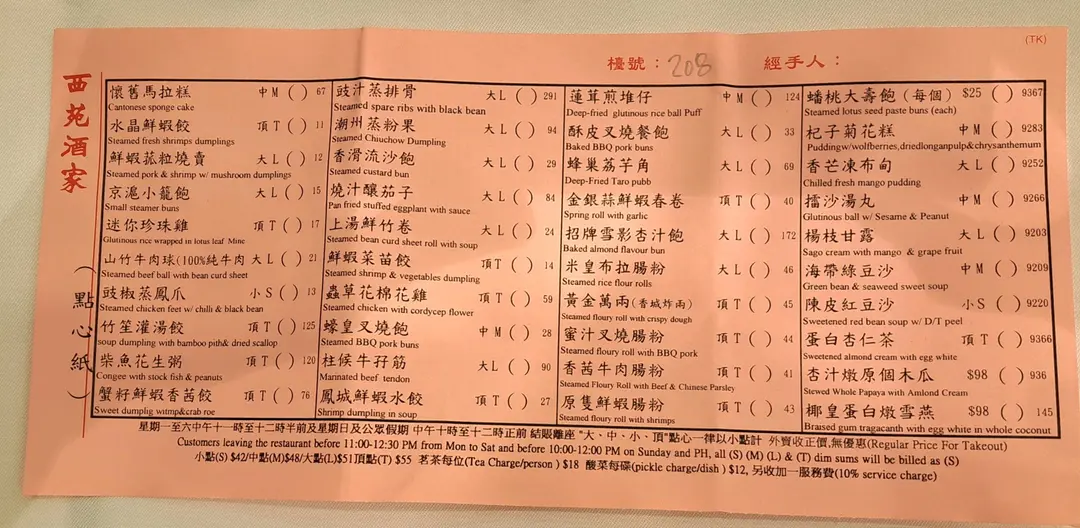 (TK)
檯號：208 經手人：
西苑酒家
（點心紙）
懷舊馬拉糕 中 M ( ) 67
Cantonese sponge cake
水晶鮮蝦餃 頂 T ( ) 11
Steamed fresh shrimps dumplings
鮮蝦菰粒燒賣 大 L ( ) 12
Steamed pork & shrimp w/ mushroom dumplings
京滬小籠飽 大 L ( ) 15
Small steamer buns
迷你珍珠雞 頂 T ( ) 17
Glutinous rice wrapped in lotus leaf Mine
山竹牛肉球(100%純牛肉 大 L ( ) 21
Steamed beef ball with bean curd sheet
豉椒蒸鳳爪 小 S ( ) 13
Steamed chicken feet w/ chili & black bean
竹笙灌湯餃 頂 T ( ) 125
soup dumpling with bamboo pith& dried scallop
柴魚花生粥 頂 T ( ) 120
Congee with stock fish & peanuts
蟹籽鮮蝦香茜餃 頂 T ( ) 76
Sweet dumplig witmp&crab roe
豉汁蒸排骨 大 L ( ) 291
Steamed spare ribs with black bean
潮州蒸粉果 大 L ( ) 94
Steamed Chiuchow Dumpling
香滑流沙飽 大 L ( ) 29
Steamed custard bun
燒汁釀茄子 大 L ( ) 84
Pan fried stuffed eggplant with sauce
上湯鮮竹卷 大 L ( ) 24
Steamed bean curd sheet roll with soup
鮮蝦菜苗餃 頂T ( ) 14
Steamed shrimp & vegetables dumpling
蟲草花棉花雞 頂T ( ) 59
Steamed chicken with cordycep flower
蠔皇叉燒飽 中 M ( ) 28
Steamed BBQ pork buns
柱候牛孖筋 大L ( ) 90
Marinated beef tendon
鳳城鮮蝦水餃 頂 T ( ) 27
Shrimp dumpling in soup
蓮茸煎堆仔 中 M ( ) 124
Deep-fried glutinous rice ball Puff
酥皮叉燒餐飽 大 L ( ) 33
Baked BBQ pork buns
蜂巢荔芋角 大 L ( ) 69
Deep-Fried Taro pubb
金銀蒜鮮蝦春卷 頂 T ( ) 40
Spring roll with garlic
招牌雪影杏汁飽 大 L ( ) 172
Baked almond flavour bun
米皇布拉腸粉 大 L ( ) 46
Steamed rice flour rolls
黃金萬兩(香城炸兩) 頂 T ( ) 45
Steamed floury roll with crispy dough
蜜汁叉燒腸粉 頂 T ( ) 44
Steamed floury roll with BBQ pork
香茜牛肉腸粉 頂 T ( ) 41
Steamed Floury Roll with Beef & Chinese Parsley
原隻鮮蝦腸粉 頂 T ( ) 43
Steamed floury roll with shrimps
蟠桃大壽飽（每個） $25 ( ) 9367
Steamed lotus seed paste buns (each)
杞子菊花糕 中 M ( ) 9283
Pudding w/wolfberries,driedlonganpulp&chrysanthemum
香芒凍布甸 大 L ( ) 9252
Chilled fresh mango pudding
擂沙湯丸 中 M ( ) 9266
Glutinous ball w/ Sesame & Peanut
楊枝甘露 大 L ( ) 9203
Sago cream with mango & grape fruit
海帶綠豆沙 中 M ( ) 9209
Green bean & seaweed sweet soup
陳皮紅豆沙 小 S ( ) 9220
Sweetened red bean soup w/ D/T peel
蛋白杏仁茶 頂 T ( ) 9366
Sweetened almond cream with egg white
杏汁燉原個木瓜 $98 ( ) 936
Stewed Whole Papaya with Amlond Cream
椰皇蛋白燉雪燕 $98 ( ) 145
Braised gum tragacanth with egg white in whole coconut
星期一至六中午十一時至十二時半前及星期日及公眾假期 中午十時至十二時正前 結賬離座 "大、中、小、頂"點心一律以小點計 外賣收正價,無優惠(Regular Price For Takeout)
Customers leaving the restaurant before 11:00-12:30 PM from Mon to Sat and before 10:00-12:00 PM on Sunday and PH, all (S) (M) (L) & (T) dim sums will be billed as (S)
小點(S) $42/中點(M)$48/大點(L)$51頂點(T) $55 茗茶每位(Tea Charge/person ) $18 酸菜每碟(pickle charge/dish ) $12, 另收加一服務費(10% service charge)